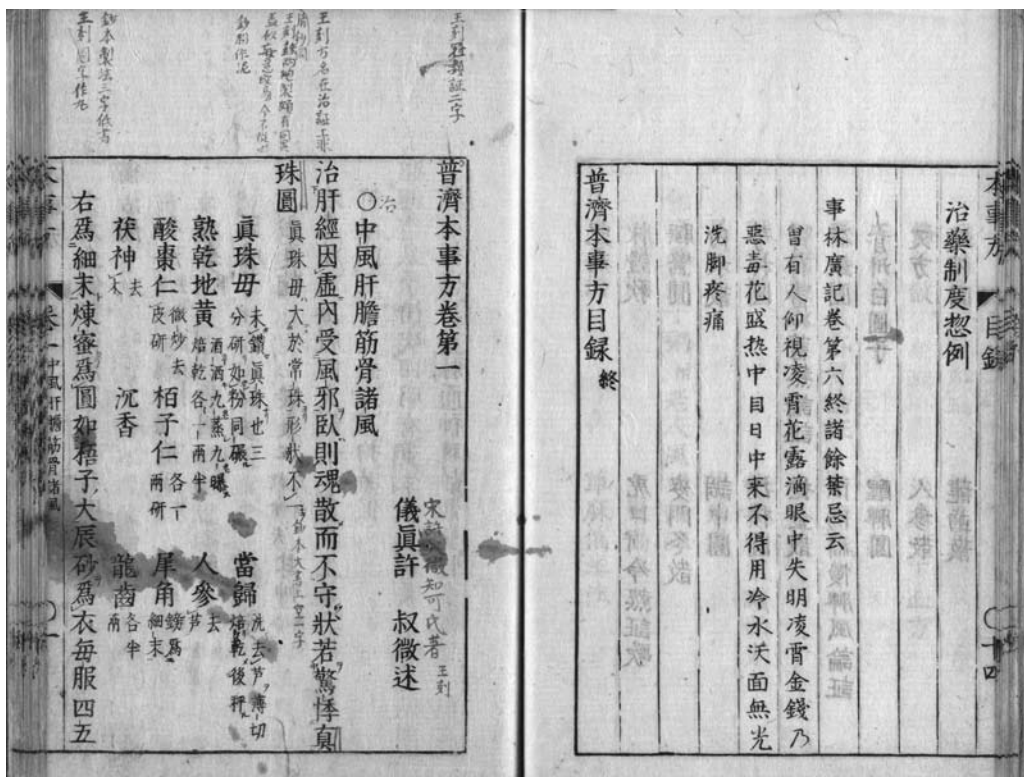 本事方 目録 十四
治藥制度惣例
事林廣記卷第六終諸餘禁忌云
曾有人仰視凌霄花露滴眼中失明凌霄金錢乃
惡毒花盛热中目日中来不得用冷水沃面無光
洗脚疼痛
普濟本事方目録 終
王刻
證二字
普濟本事方卷第一
宋許叔微知可氏著 王刻
儀眞許 叔微述
治
〇中風肝膽筋骨諸風
治肝經因虛內受風邪臥則魂散而不守狀若驚悸眞
珠圓 眞珠毋大於常珠形状不一
眞珠毋 未鑚眞珠也三
分研如粉同碾 當歸 洗去芦薄切
焙乾後秤
熟乾地黃 酒洒九蒸九曝
焙乾各一兩半 人參 去
芦
酸棗仁 微炒去
皮研 栢子仁 各一
兩研 犀角 鎊爲
細末
茯神 去
木 沉香 龍齒 各半
兩
右爲細末煉蜜爲圓如梧子大辰砂爲衣每服四五
王刻方名在治証
鈔本製法三字低書
王刻圓字作丸
本事方 卷一 中風肝膽筋骨諸風 一